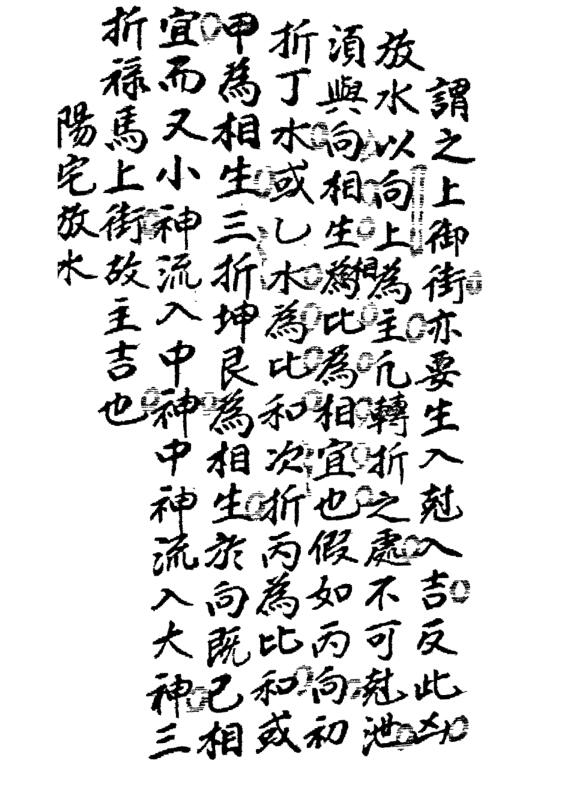 謂之上御街亦要生入尅入吉反此凶
放水以向上為主凢轉折之處不可尅泄
湏與向相生為相比為相宜也假如丙向初
折丁水或乚水為比和次折丙為比和或
甲為相生三折坤艮為相生於向既已相
宜而又小神流入中神中神流入大神三
折禄馬上街故主吉也
陽宅放水